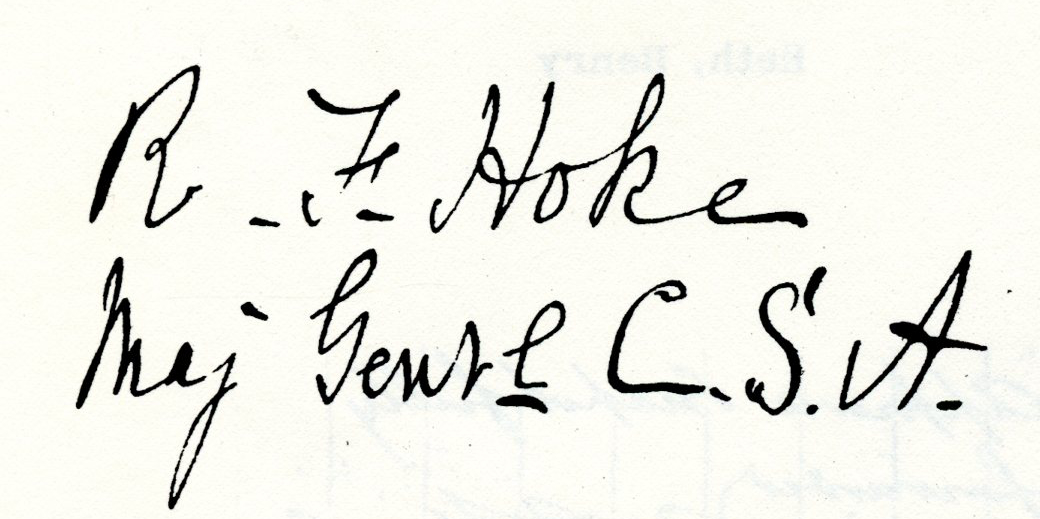 R. F. Hoke
Maj Genrl C. S. A.